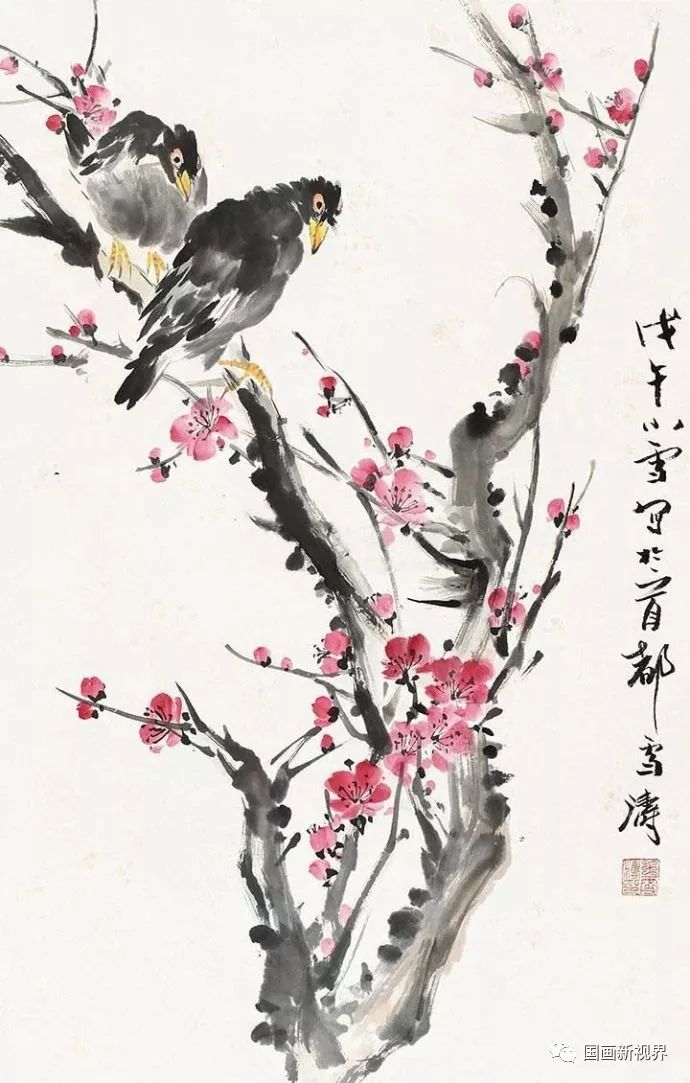 戊午小雪写于首都雪涛
国画新视界